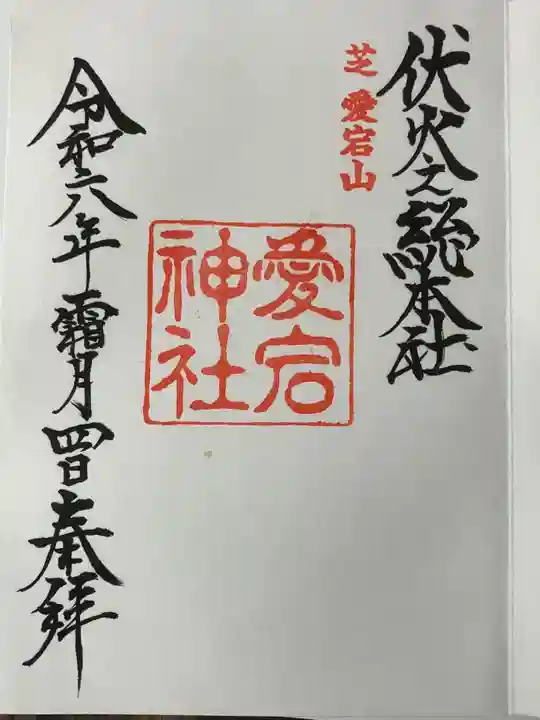 伏火之総本社
芝 愛宕山
愛宕
神社
令和六年霜月四日奉拝